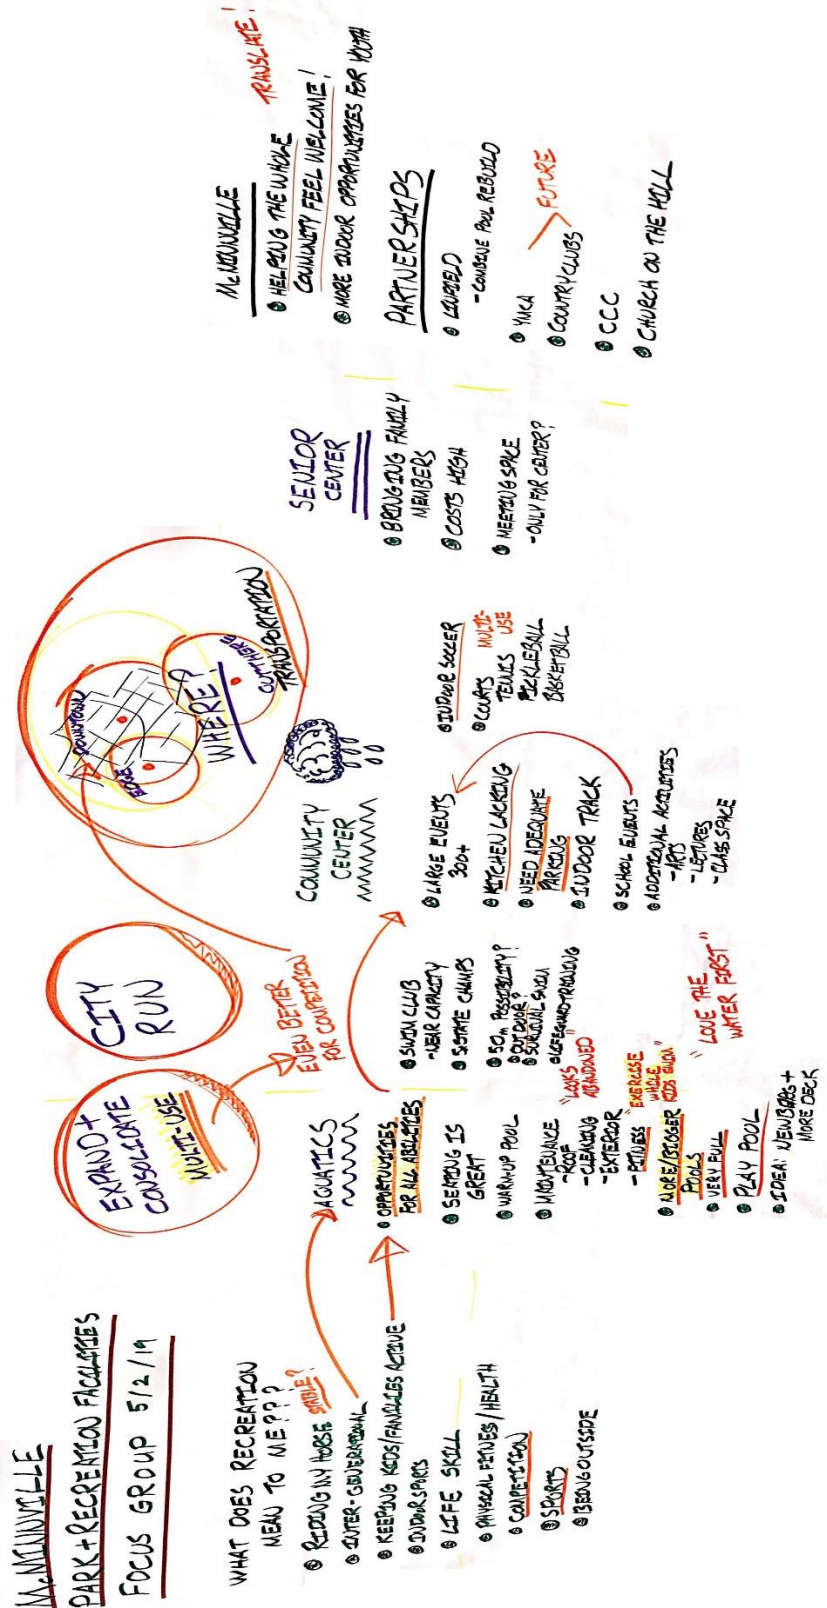 McMINNVILLE
PARK + RECREATION FACILITIES
FOCUS GROUP 5/2/19
WHAT DOES RECREATION
MEAN TO ME???
RIDING MY HORSE STABLE?
INTER-GENERATIONAL
KEEPING KIDS/FAMILIES ACTIVE
INDOOR SPORTS
LIFE SKILL
PHYSICAL FITNESS/HEALTH
COMPETITION
SPORTS
BEING OUTSIDE
EXPAND +
CONSOLIDATE
MULTI-USE
CITY
RUN
EVEN BETTER
FOR COMPETITION
AQUATICS
OPPORTUNITIES
FOR ALL ABILITIES
SEATING IS
GREAT
WARM-UP POOL
MAINTENANCE
-ROOF
-CLEANING
-EXTERIOR
"LOOKS
ABANDONED"
-FITNESS
"EXERCISE
WHILE
KIDS SWIM"
MORE/BIGGER
POOLS
VERY FULL
PLAY POOL
IDEA: NEWBERG +
MORE DECK
SWIM CLUB
-NEAR CAPACITY
5X STATE CHAMPS
50m POSSIBILITY?
OUTDOOR?
SURVIVAL SWIM
LIFEGUARD TRAINING
"LOVE THE
WATER FIRST"
DOWNTOWN
EDGE
WHERE?
OUT HERE
TRANSPORTATION
COMMUNITY
CENTER
LARGE EVENTS
300+
KITCHEN LACKING
NEED ADEQUATE
PARKING
INDOOR TRACK
SCHOOL EVENTS
ADDITIONAL ACTIVITIES
-ARTS
-LECTURES
-CLASS SPACE
INDOOR SOCCER
COURTS MULTI-
USE
TENNIS
PICKLEBALL
BASKETBALL
SENIOR
CENTER
BRINGING FAMILY
MEMBERS
COSTS HIGH
MEETING SPACE
-ONLY FOR CENTER?
McMINNVILLE
HELPING THE WHOLE
COMMUNITY FEEL WELCOME!
TRANSLATE!
MORE INDOOR OPPORTUNITIES FOR YOUTH
PARTNERSHIPS
LINFIELD
-COMBINE POOL REBUILD
YMCA
COUNTRY CLUBS
FUTURE
CCC
CHURCH ON THE HILL